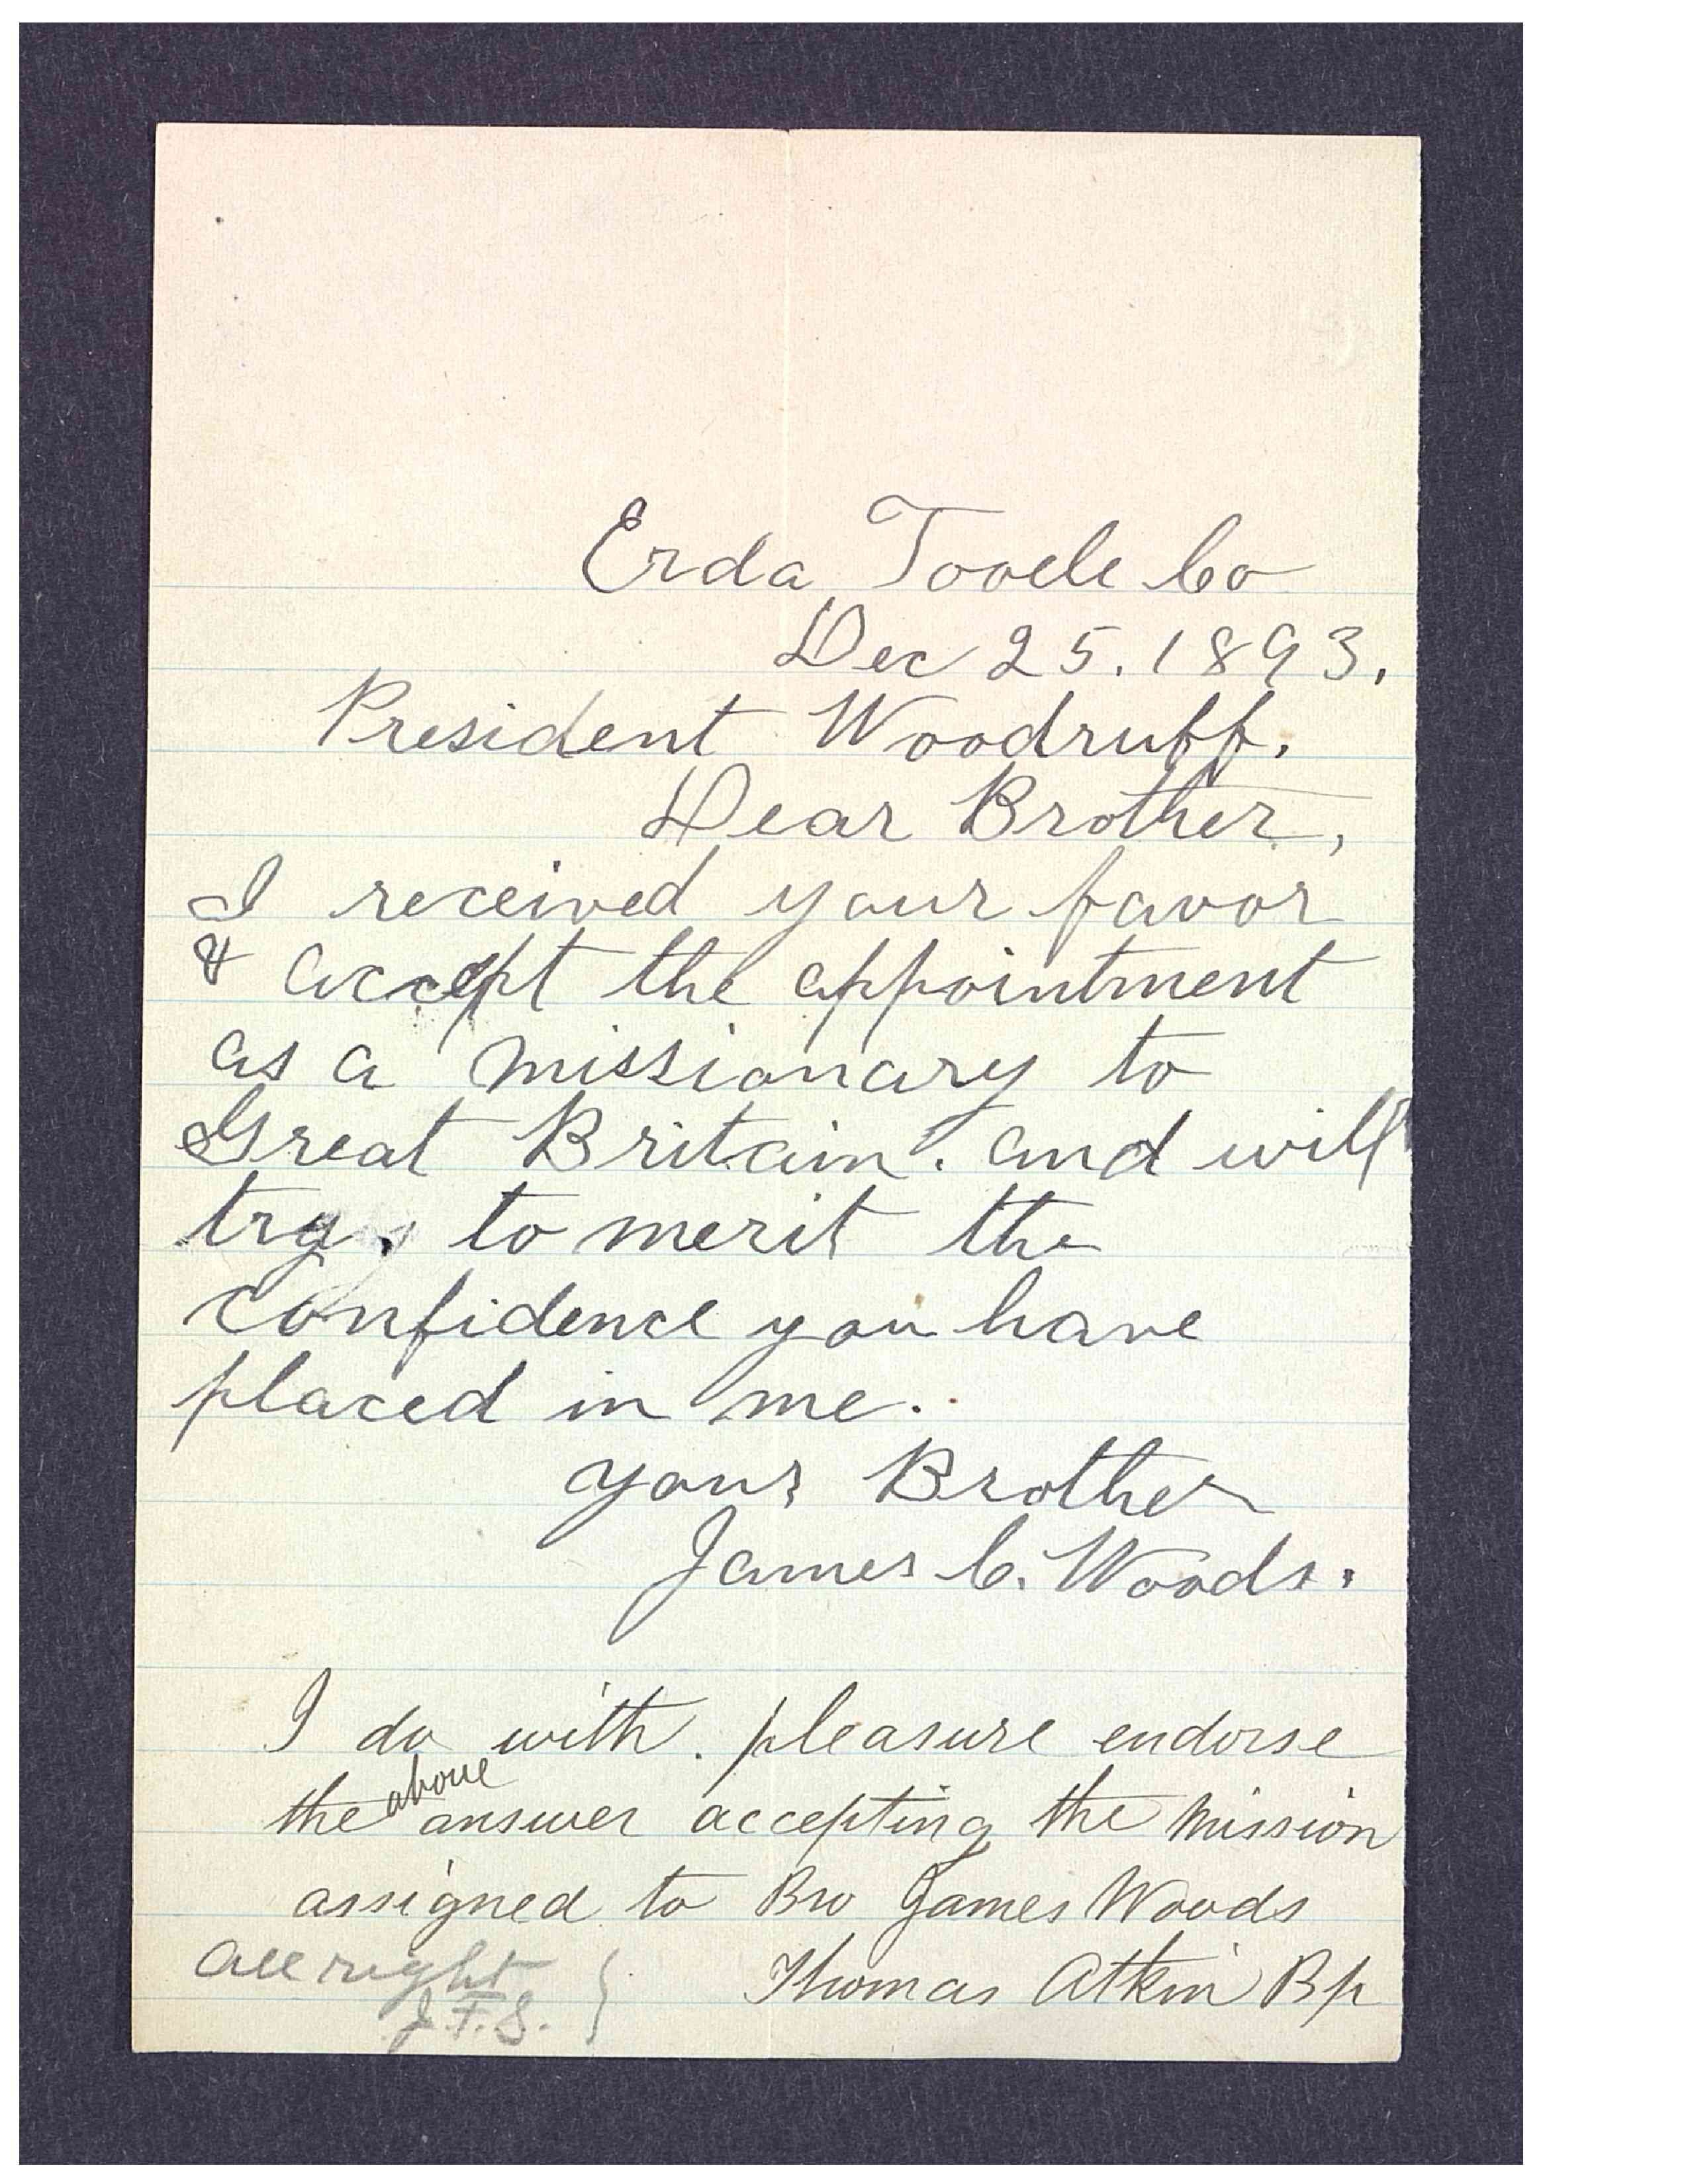 Erda Tooele Co
Dec 25. 1893.
President Woodruff.
Dear Brother,
I received your favor
& accept the appointment
as a missionary to
Great Britain. and will
try, to merit the
confidence you have
placed in me.
your Brother
James C. Woods.
I do with. pleasure endorse
the above answer accepting the mission
assigned to Bro James Woods
Thomas Atkin Bp
All right }
J.F.S.